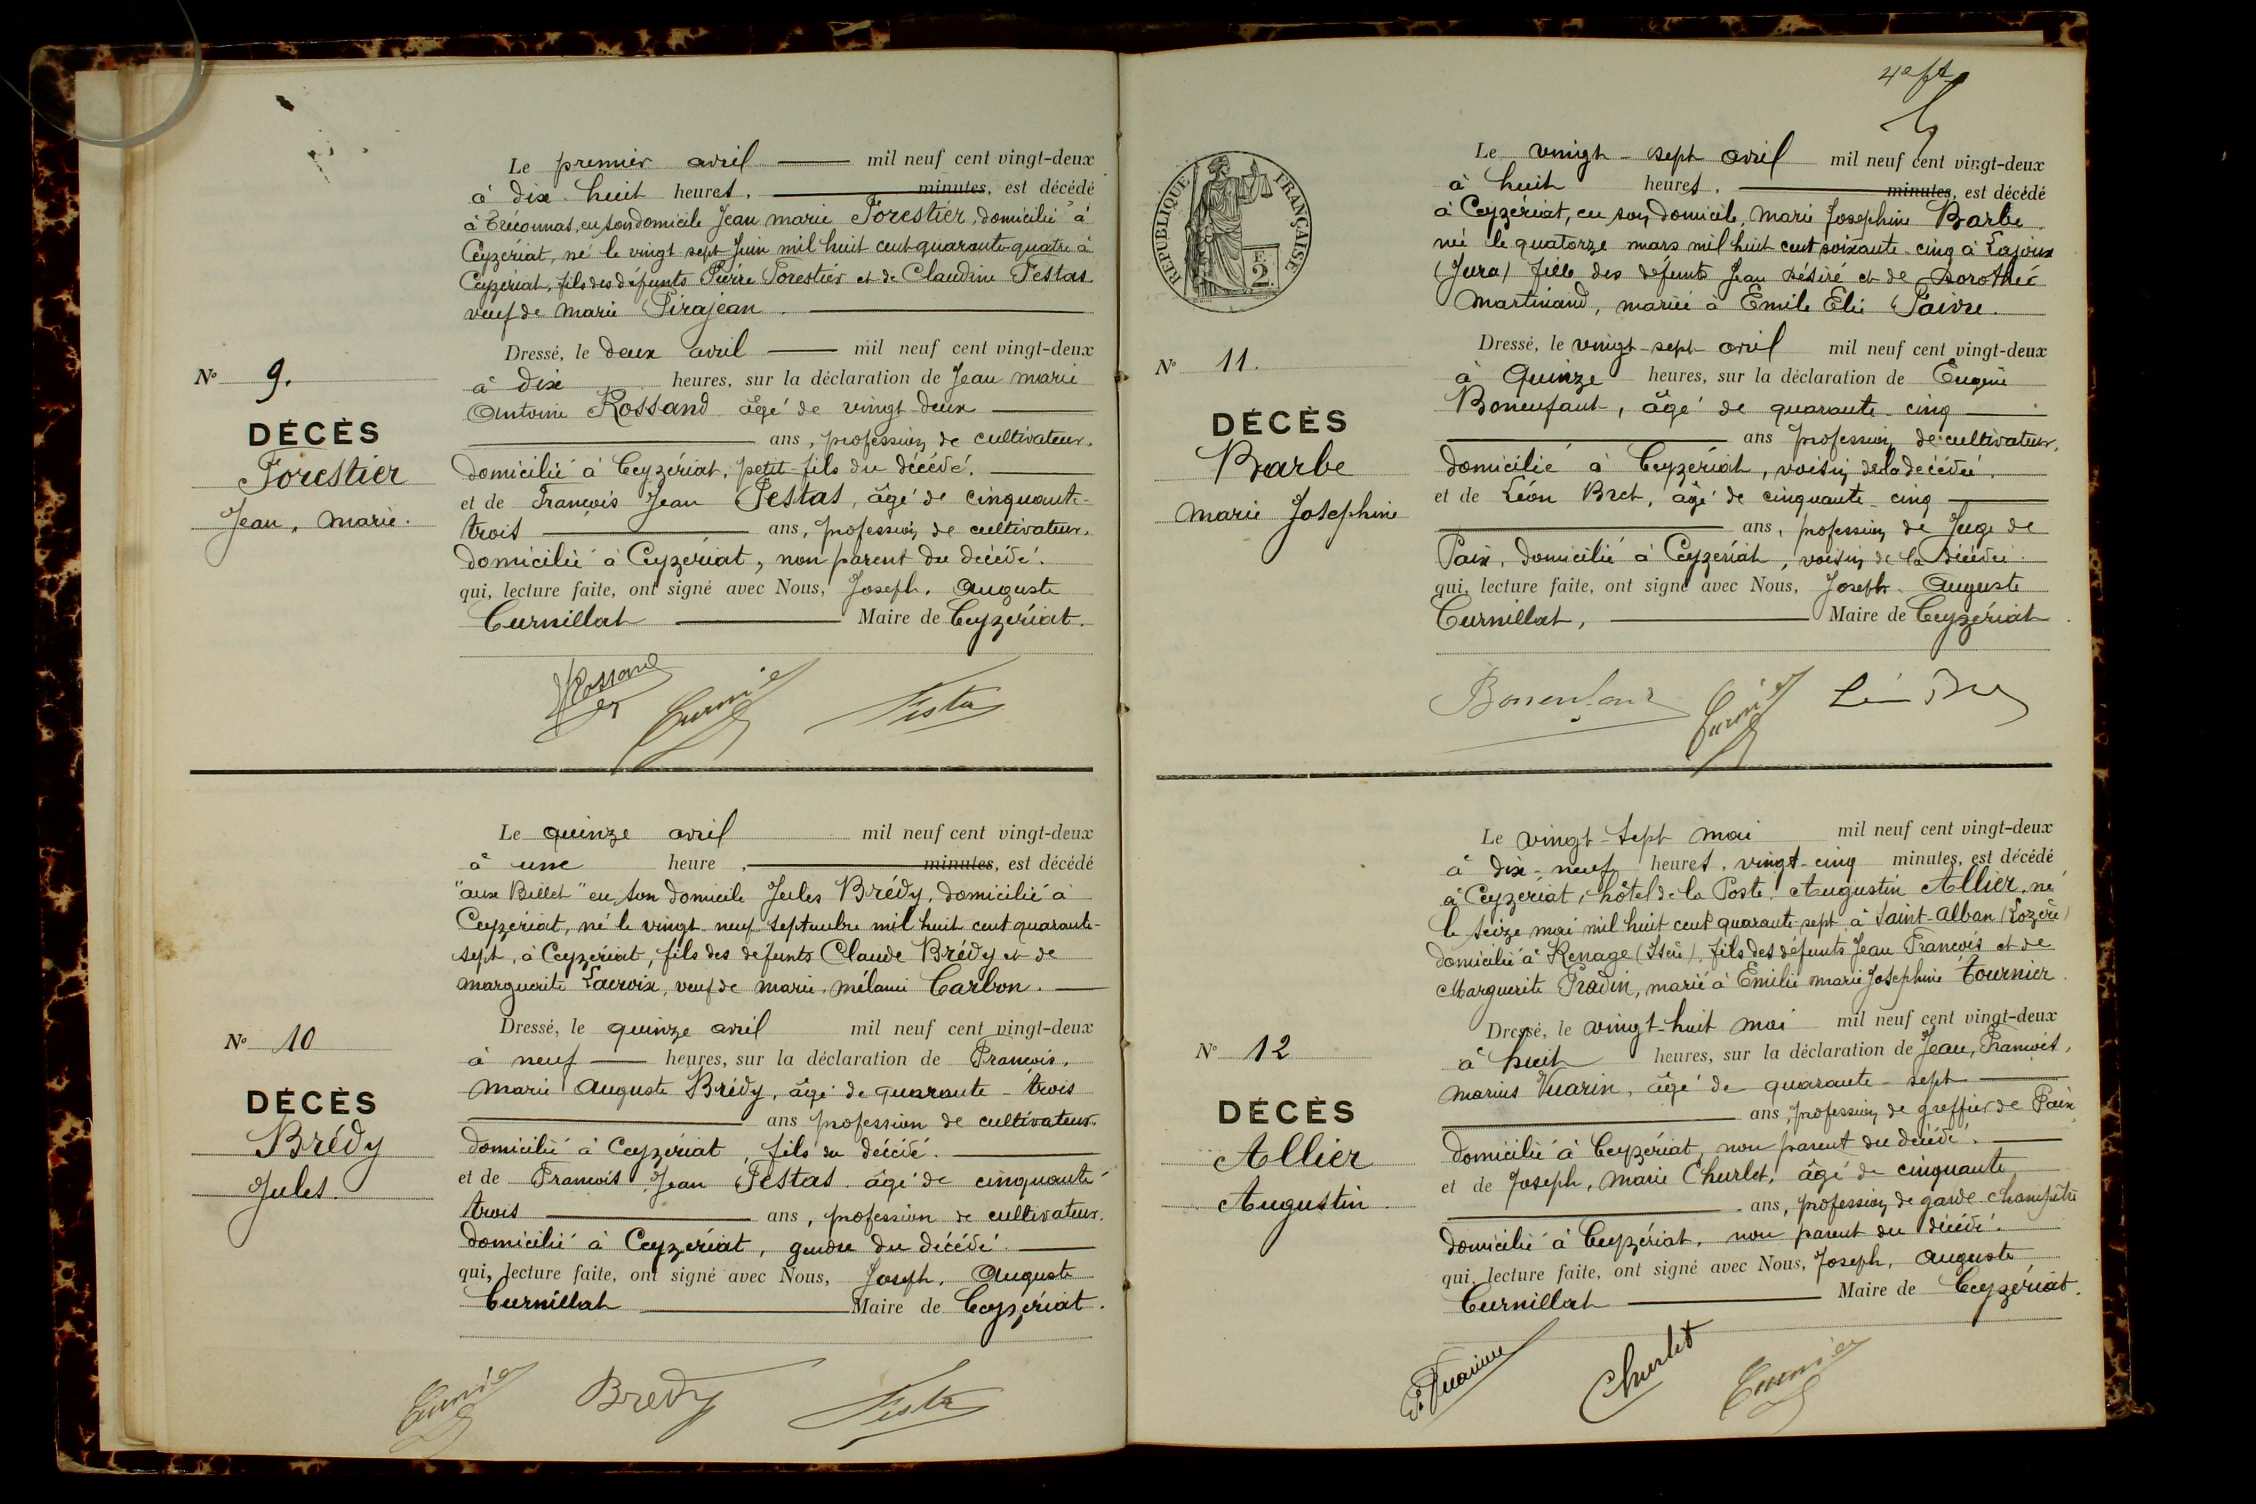 Le premier avril mil neuf cent vingt-deux
à dix huit heures, minutes, est décédé
à Tréconnas, en son domicile Jean Marie Forestier, domicilié à
Ceyzériat, né le vingt sept Juin mil huit cent quarante-quatre à
Ceyzériat, fils des défunts Pierre Forestier et de Claudine Festas
veuf de Marie Pirajean.
Dressé, le deux avril mil neuf cent vingt-deux
à dix heures, sur la déclaration de Jean Marie
Antoine Rossand âgé de vingt deux
ans, profession de cultivateur.
domicilié à Ceyzériat, petit-fils du décédé.
et de François Jean Festas, âgé de cinquante-
trois ans, profession de cultivateur.
domicilié à Ceyzériat, non parent du décédé.
qui, lecture faite, ont signé avec Nous, Joseph, Auguste
Curnillat Maire de Ceyzériat.
No 9.
DÉCÈS
Forestier
Jean, Marie.
Le quinze avril mil neuf cent vingt-deux
à une heure, minutes, est décédé
"aux Billet" en son domicile Jules Brédy, domicilié à
Ceyzériat, né le vingt neuf Septembre mil huit cent quarante-
sept, à Ceyzériat, fils des défunts Claude Brédy et de
Marguerite Lacroix, veuf de Marie, Mélanie Carbon.
Dressé, le quinze avril mil neuf cent vingt-deux
à neuf heures, sur la déclaration de François,
Marie Auguste Brédy, âgé de quarante-trois
ans profession de cultivateur.
domicilié à Ceyzériat, fils du décédé.
et de François Jean Festas âgé de cinquante
trois ans, profession de cultivateur.
domicilié à Ceyzériat, gendre du décédé.
qui, lecture faite, ont signé avec Nous, Joseph, Auguste
Curnillat Maire de Ceyzériat.
No 10
DÉCÈS
Brédy
Jules.
Bredy
RÉPUBLIQUE FRANÇAISE
2
Le vingt-sept avril mil neuf cent vingt-deux
à huit heures, minutes, est décédé
à Ceyzériat, en son domicile, Marie Josephine Barbe
née le quatorze mars mil huit cent soixante-cinq à Lajoux
(Jura) fille des défunts Jean Désiré et de Dorothée
Martinand, mariée à Emile Elie Paivre.
Dressé, le vingt-sept avril mil neuf cent vingt-deux
à Quinze heures, sur la déclaration de Eugène
Bonenfant, âgé de quarante-cinq
ans profession de cultivateur,
domicilié à Ceyzériat, voisin de la décédée.
et de Léon Bret, âgé de cinquante-cinq
ans, profession de Juge de
Paix, domicilié à Ceyzériat, voisin de la décédée.
qui, lecture faite, ont signé avec Nous, Joseph Auguste
Curnillat, Maire de Ceyzériat
No 11.
DÉCÈS
Barbe
Marie Josephine
Bonenfant
Le vingt-sept mai mil neuf cent vingt-deux
à dix-neuf heures, vingt-cinq minutes, est décédé
à Ceyzériat, hôtel de la Poste, Augustin Allier, né
le seize mai mil huit cent quarante-sept à Saint-Alban (Lozère)
domicilié à Renage (Isère), fils des défunts Jean François et de
Marguerite Pradin, marié à Emilie Marie Josephine Tournier.
Dressé, le vingt-huit mai mil neuf cent vingt-deux
à huit heures, sur la déclaration de Jean, François,
Marius Vuarin, âgé de quarante-sept
ans, profession de greffier de Paix,
domicilié à Ceyzériat, non parent du décédé.
et de Joseph, Marie Churlet, âgé de cinquante
ans, profession de garde-champêtre
domicilié à Ceyzériat, non parent du décédé.
qui, lecture faite, ont signé avec Nous, Joseph, Auguste
Curnillat Maire de Ceyzériat.
No 12
DÉCÈS
Allier
Augustin
Churlet